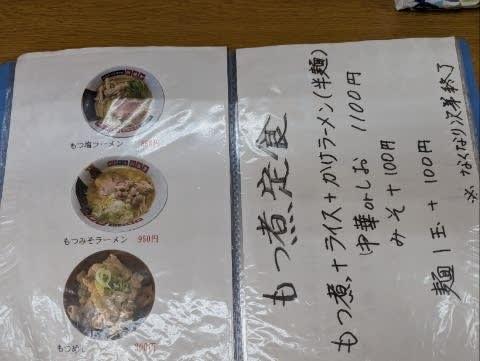 もつ塩ラーメン
もつみそラーメン 950円
もつめし
もつ煮定食
もつ煮+ライス+かけラーメン(半麺)
中華orしお 1100円
みそ+100円
麺1玉+100円
※なくなり次第終了